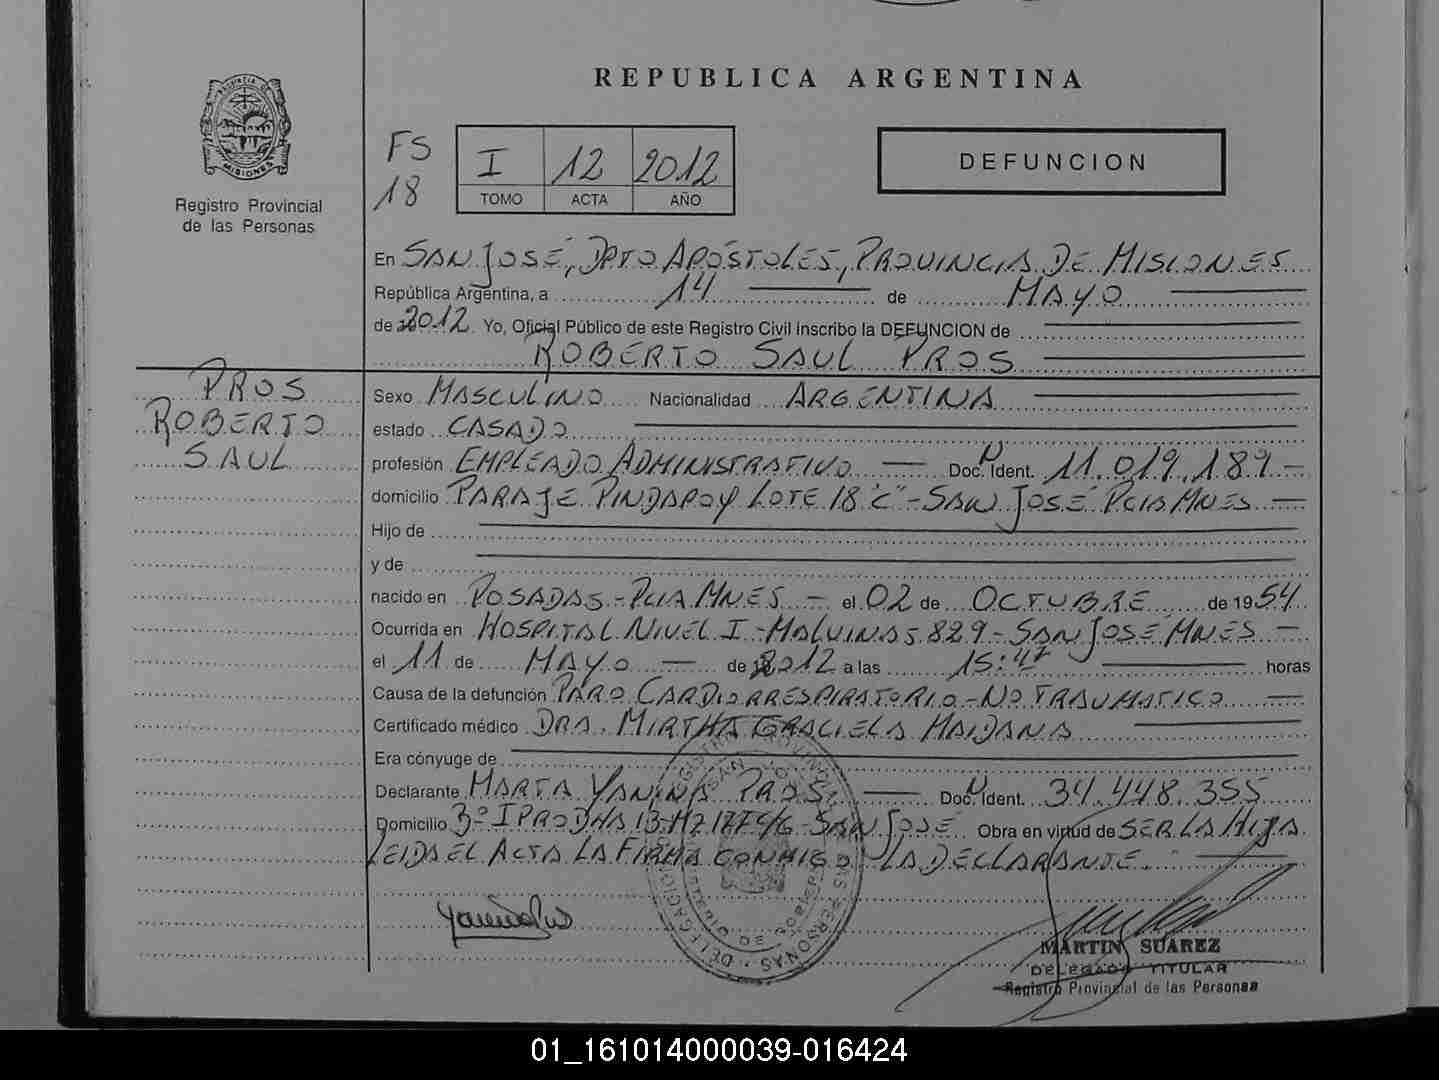 REPUBLICA ARGENTINA
PROVINCIA DE
MISIONES
Registro Provincial
de las Personas
FS
18
I 12 2012
TOMO ACTA AÑO
DEFUNCION
En SAN JOSÉ, DPTO APÓSTOLES, PROVINCIA DE MISIONES
República Argentina, a 14 de MAYO
de 2012. Yo, Oficial Público de este Registro Civil inscribo la DEFUNCION de
ROBERTO SAUL PROS
PROS
ROBERTO
SAUL
Sexo MASCULINO Nacionalidad ARGENTINA
estado CASADO
profesión EMPLEADO ADMINISTRATIVO — Doc. N Ident. 11.019.189 —
domicilio PARAJE PINDAPOY LOTE 18 "C" - SAN JOSÉ PCIA MNES —
Hijo de
y de
nacido en POSADAS - PCIA MNES — el 02 de OCTUBRE de 1954
Ocurrida en HOSPITAL NIVEL I - MALVINAS 829 - SAN JOSÉ MNES —
el 11 de MAYO — de 2012 a las 15:47 horas
Causa de la defunción PARO CARDIORRESPIRATORIO - NO TRAUMATICO —
Certificado médico DRA. MIRTHA GRACIELA MAIDANA
Era cónyuge de
Declarante MARTA YANINA PROS — Doc. N Ident. 34.448.355
Domicilio 3º I PRODHA 13-MZ 17746 - SAN JOSÉ Obra en virtud de SER LA HIJA
LEIDA EL ACTA LA FIRMA CONMIGO LA DECLARANTE. —
MARTIN SUAREZ
DELEGADO TITULAR
Registro Provincial de las Personas
01_161014000039-016424